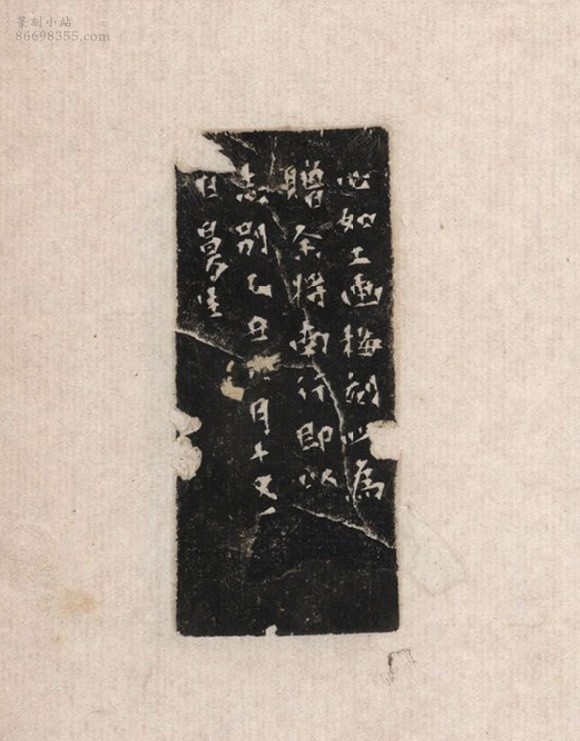 篆刻小站
86698355.com
心如工画梅刻此为
赠余将南行即以
志别乙丑月十又一
日暮生